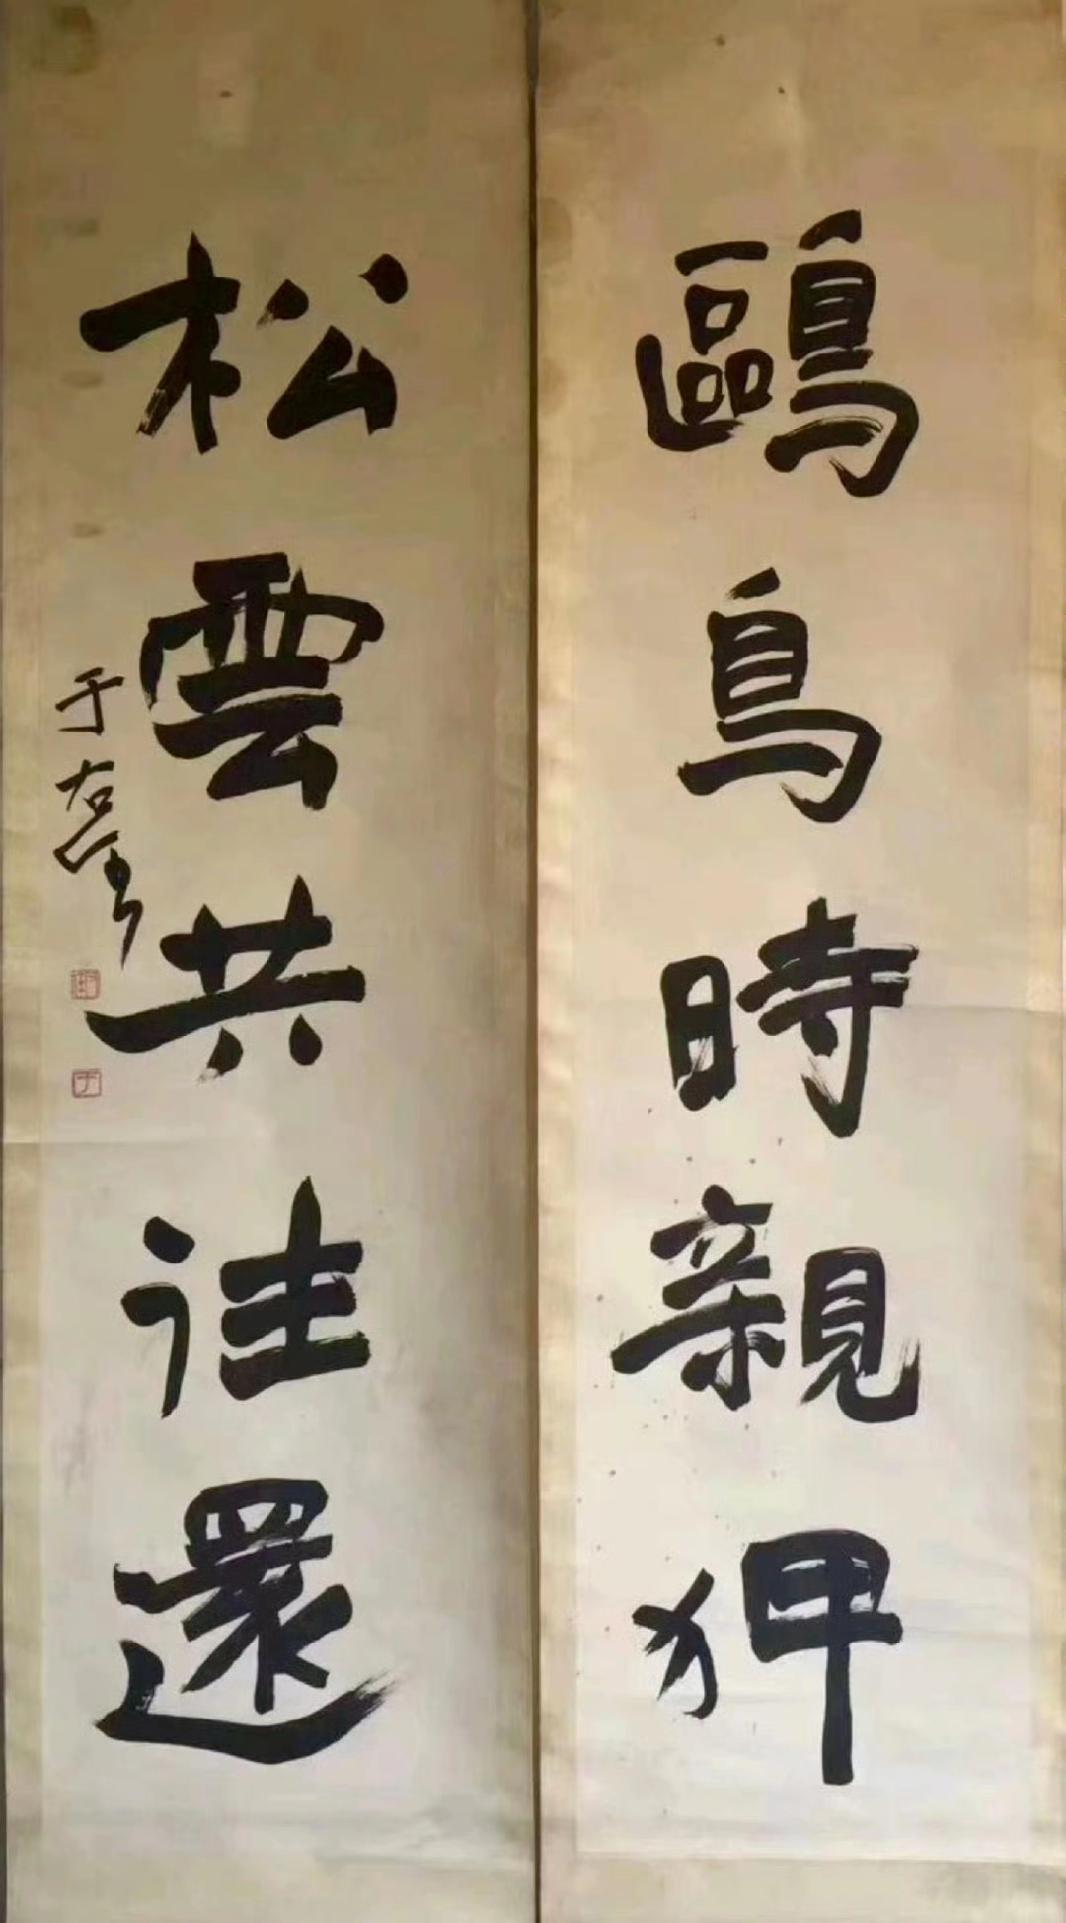 鷗鳥時親狎
松雲共往還
于右任